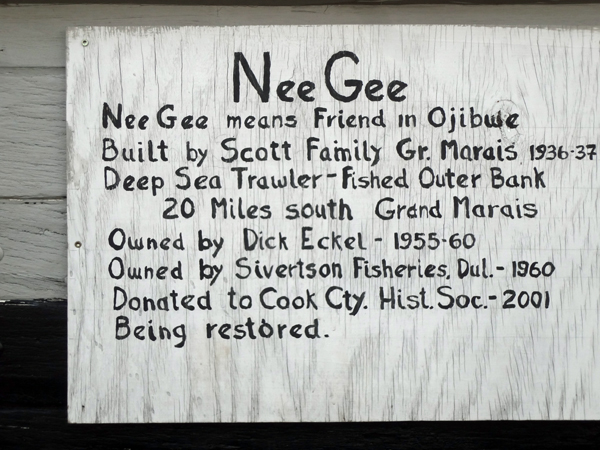 Nee Gee
Nee Gee means Friend in Ojibwe
Built by Scott Family Gr. Marais 1936-37
Deep Sea Trawler-Fished Outer Bank
20 Miles south Grand Marais
Owned by Dick Eckel - 1955-60
Owned by Sivertson Fisheries, Dul. - 1960
Donated to Cook Cty. Hist. Soc. - 2001
Being restored.